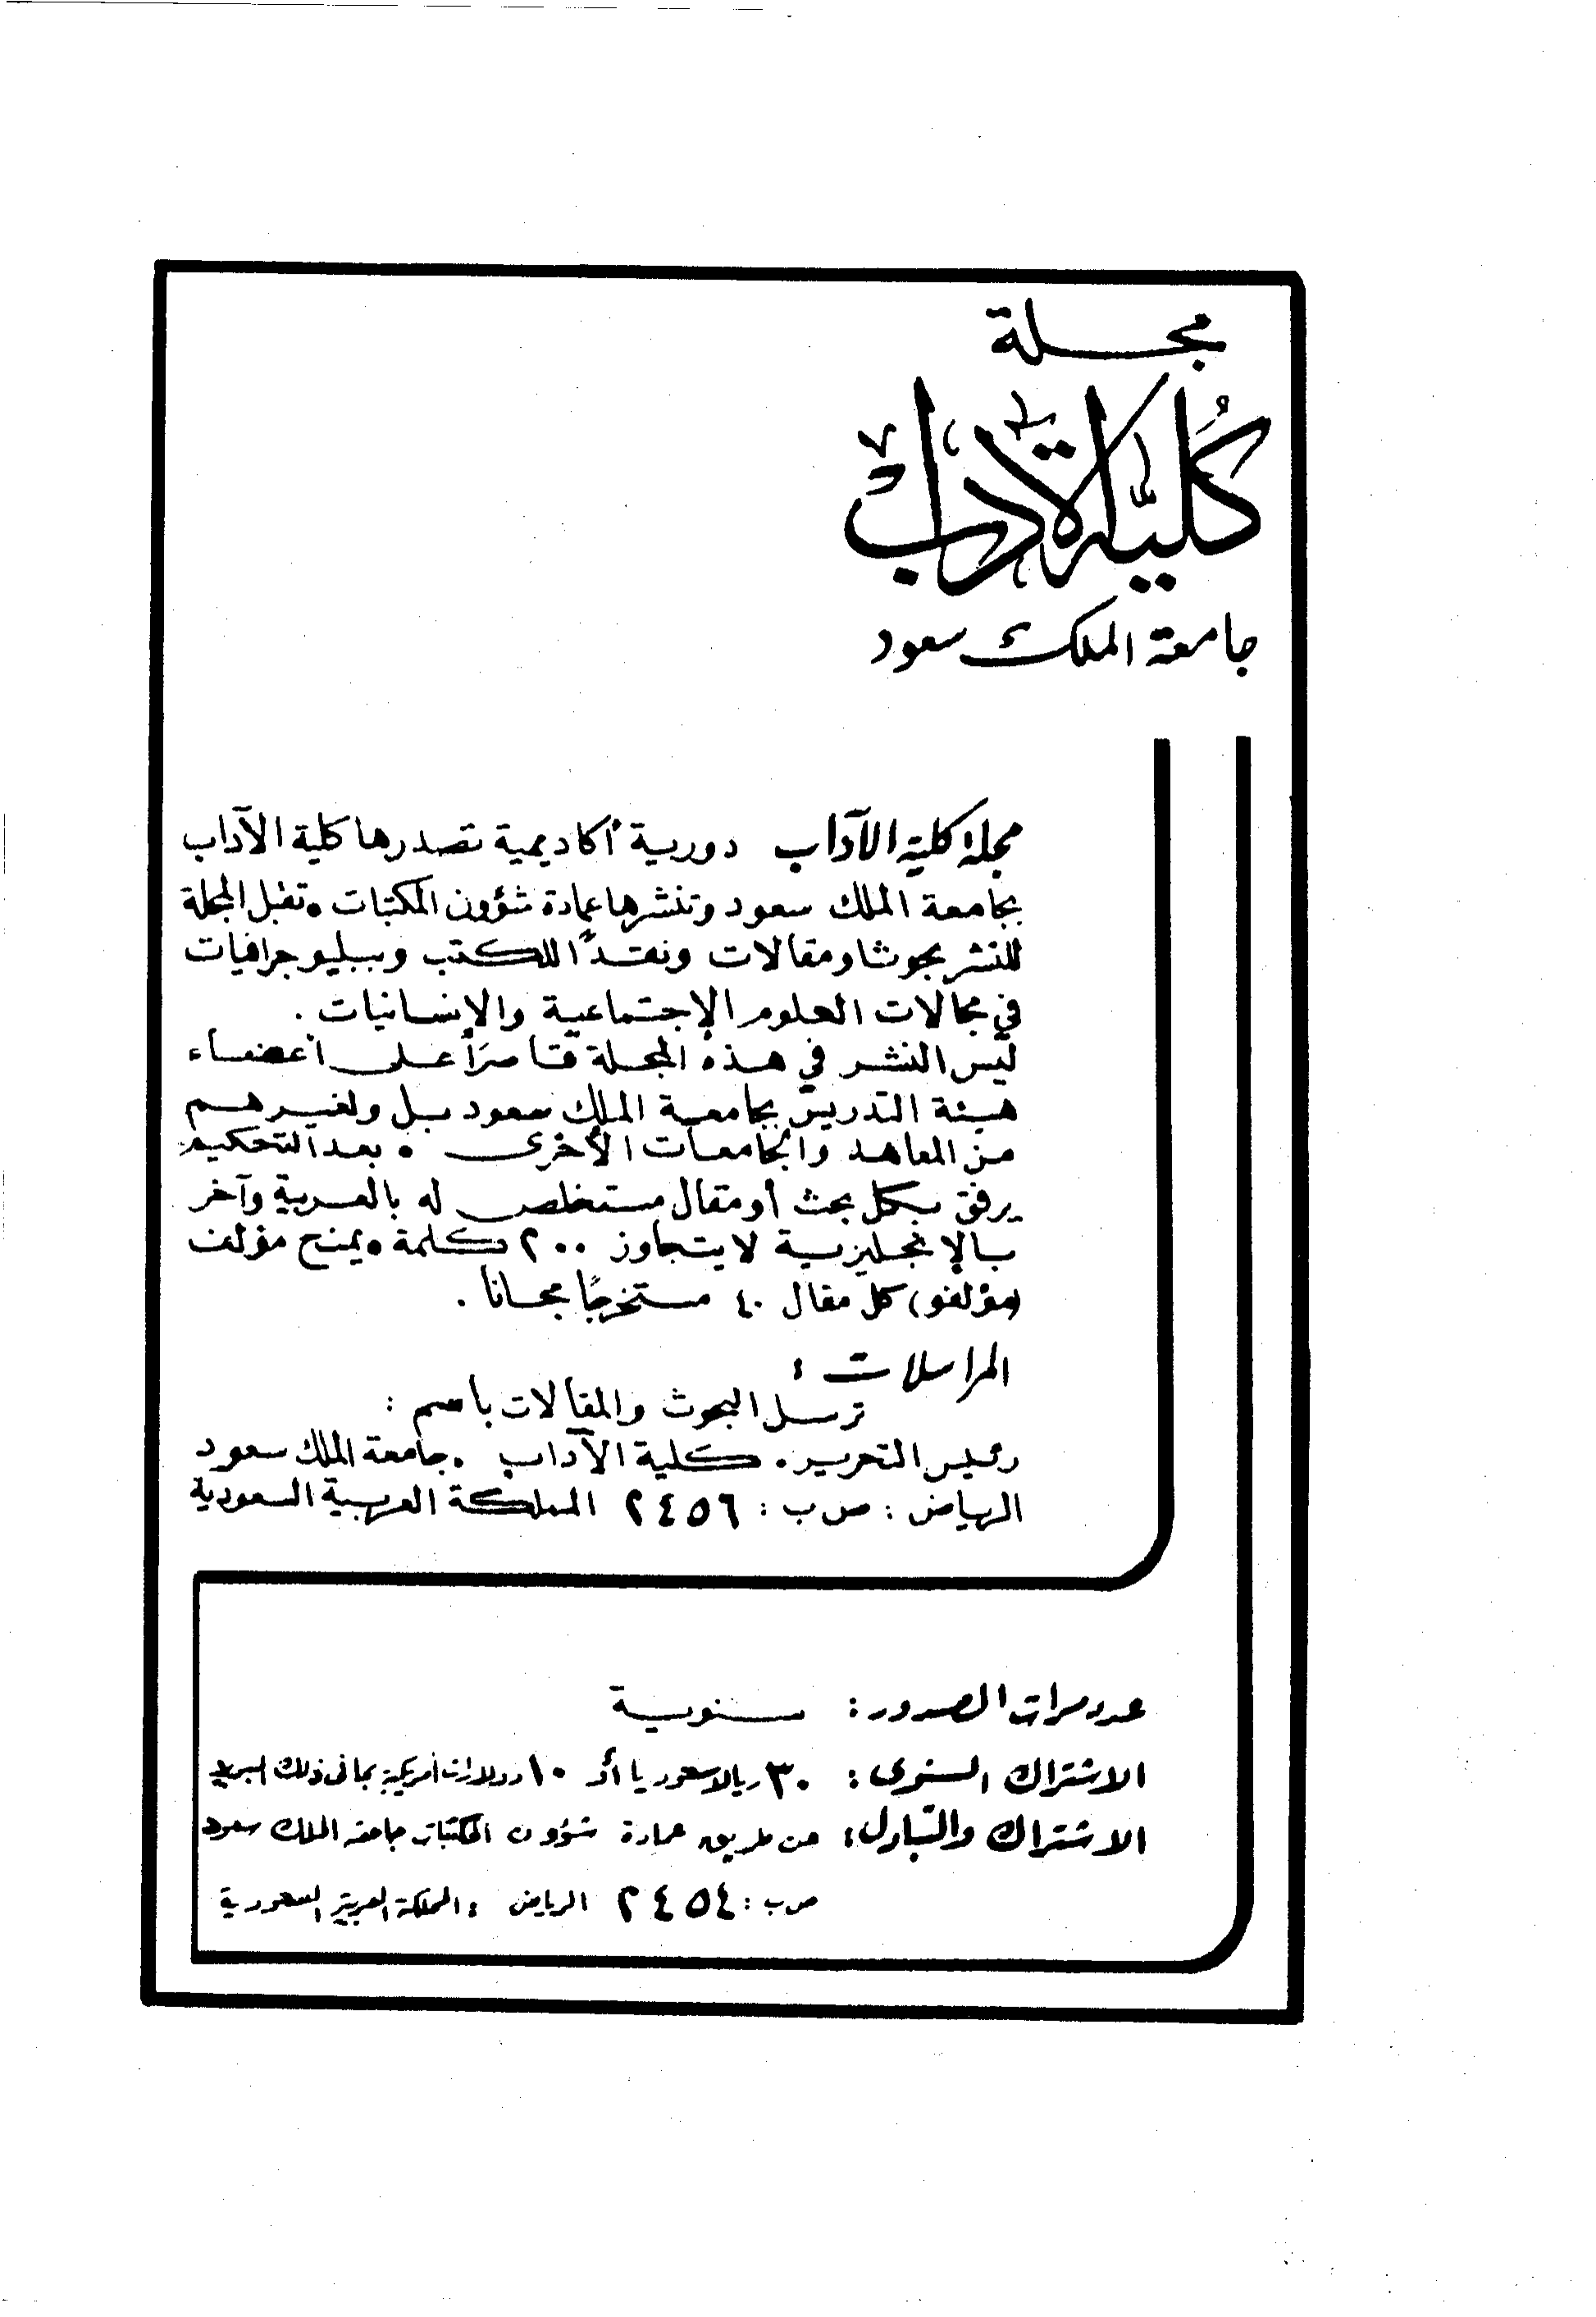 مجلة
كلية الآداب
جامعة الملك سعود
مجلة كلية الآداب دورية أكاديمية تصدرها كلية الآداب
بجامعة الملك سعود وتنشرها عمادة شؤون المكتبات . تقبل المجلة
للنشر بحوثا ومقالات ونقدًا للكتب وببليوجرافيات
في مجالات العلوم الإجتماعية والإنسانيات .
ليس النشر في هذه المجلة قاصرًا على أعضاء
هيئة التدريس بجامعة الملك سعود بل ولغيرهم
من المعاهد والجامعات الأخرى . بعد التحكيم
يرفق بكل بحث أو مقال مستخلص له بالعربية وآخر
بالإنجليزية لا يتجاوز ٢٠٠ كلمة . يمنح مؤلف
(مؤلفو) كل مقال ٤٠ مستخرجًا مجانا .
المراسلات :
ترسل البحوث والمقالات باسم :
رئيس التحرير . كلية الآداب . جامعة الملك سعود
الرياض : ص ب : ٢٤٥٦ المملكة العربية السعودية
عدد مرات الصدور : سنوية
الاشتراك السنوى : ٣٠ ريالا سعوديا أو ١٠ دولارات أمريكية بما فى ذلك البريد
الاشتراك والتبادل : عن طريق عمادة شؤون المكتبات جامعة الملك سعود
ص ب : ٢٤٥٤ الرياض ، المملكة العربية السعودية